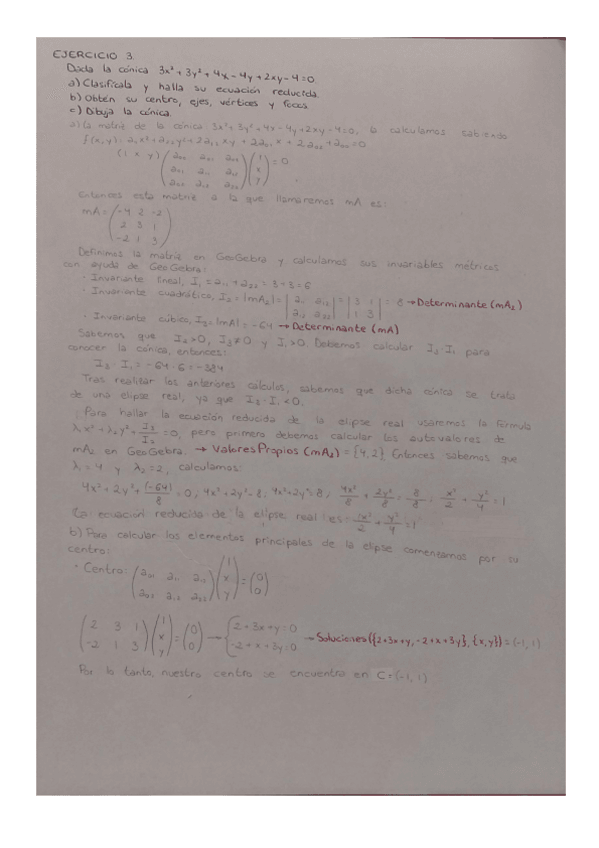 EJERCICIO 3.
Dada la cónica 3x²+3y²+4x-4y+2xy-4=0.
a) Clasifícala y halla su ecuación reducida.
b) Obtén su centro, ejes, vértices y focos.
c) Dibuja la cónica.
a) La matriz de la cónica 3x²+3y²+4x-4y+2xy-4=0, la calculamos sabiendo
(1 x y) (a₀₀ a₀₁ a₀₂ / a₀₁ a₁₁ a₁₂ / a₀₂ a₁₂ a₂₂) (1 / x / y) = 0
Entonces esta matriz a la que llamaremos mA es:
mA = (-4 2 -2 / 2 3 1 / -2 1 3)
Definimos la matriz en GeoGebra y calculamos sus invariables métricos
con ayuda de GeoGebra:
· Invariante lineal, I₁ = a₁₁ + a₂₂ = 3+3 = 6
· Invariante cuadrático, I₂ = |mA₂| = |a₁₁ a₁₂ / a₁₂ a₂₂| = |3 1 / 1 3| = 8 → Determinante (mA₂)
· Invariante cúbico, I₃ = |mA| = -64 → Determinante (mA)
Sabemos que I₂>0, I₃≠0 y I₁>0. Debemos calcular I₃·I₁ para
conocer la cónica, entonces:
I₃·I₁ = -64·6 = -384
Tras realizar los anteriores cálculos, sabemos que dicha cónica se trata
de una elipse real, ya que I₃·I₁<0.
Para hallar la ecuación reducida de la elipse real usaremos la fórmula
λ₁x²+λ₂y²+I₃/I₂=0, pero primero debemos calcular los autovalores de
mA₂ en GeoGebra. → ValoresPropios (mA₂) = {4,2}. Entonces sabemos que
λ₁=4 y λ₂=2, calculamos:
4x²+2y²+(-64)/8=0; 4x²+2y²-8; 4x²+2y²=8; 4x²/8+2y²/8=8/8; x²/2+y²/4=1
La ecuación reducida de la elipse real es: x²/2+y²/4=1
b) Para calcular los elementos principales de la elipse comenzamos por su
centro:
· Centro: (a₀₁ a₁₁ a₁₂ / a₀₂ a₁₂ a₂₂) (1 / x / y) = (0 / 0)
(2 3 1 / -2 1 3) (1 / x / y) = (0 / 0) → {2+3x+y=0 / -2+x+3y=0 → Soluciones ({2+3x+y, -2+x+3y}, {x,y}) = (-1, 1)
Por lo tanto, nuestro centro se encuentra en C=(-1, 1)